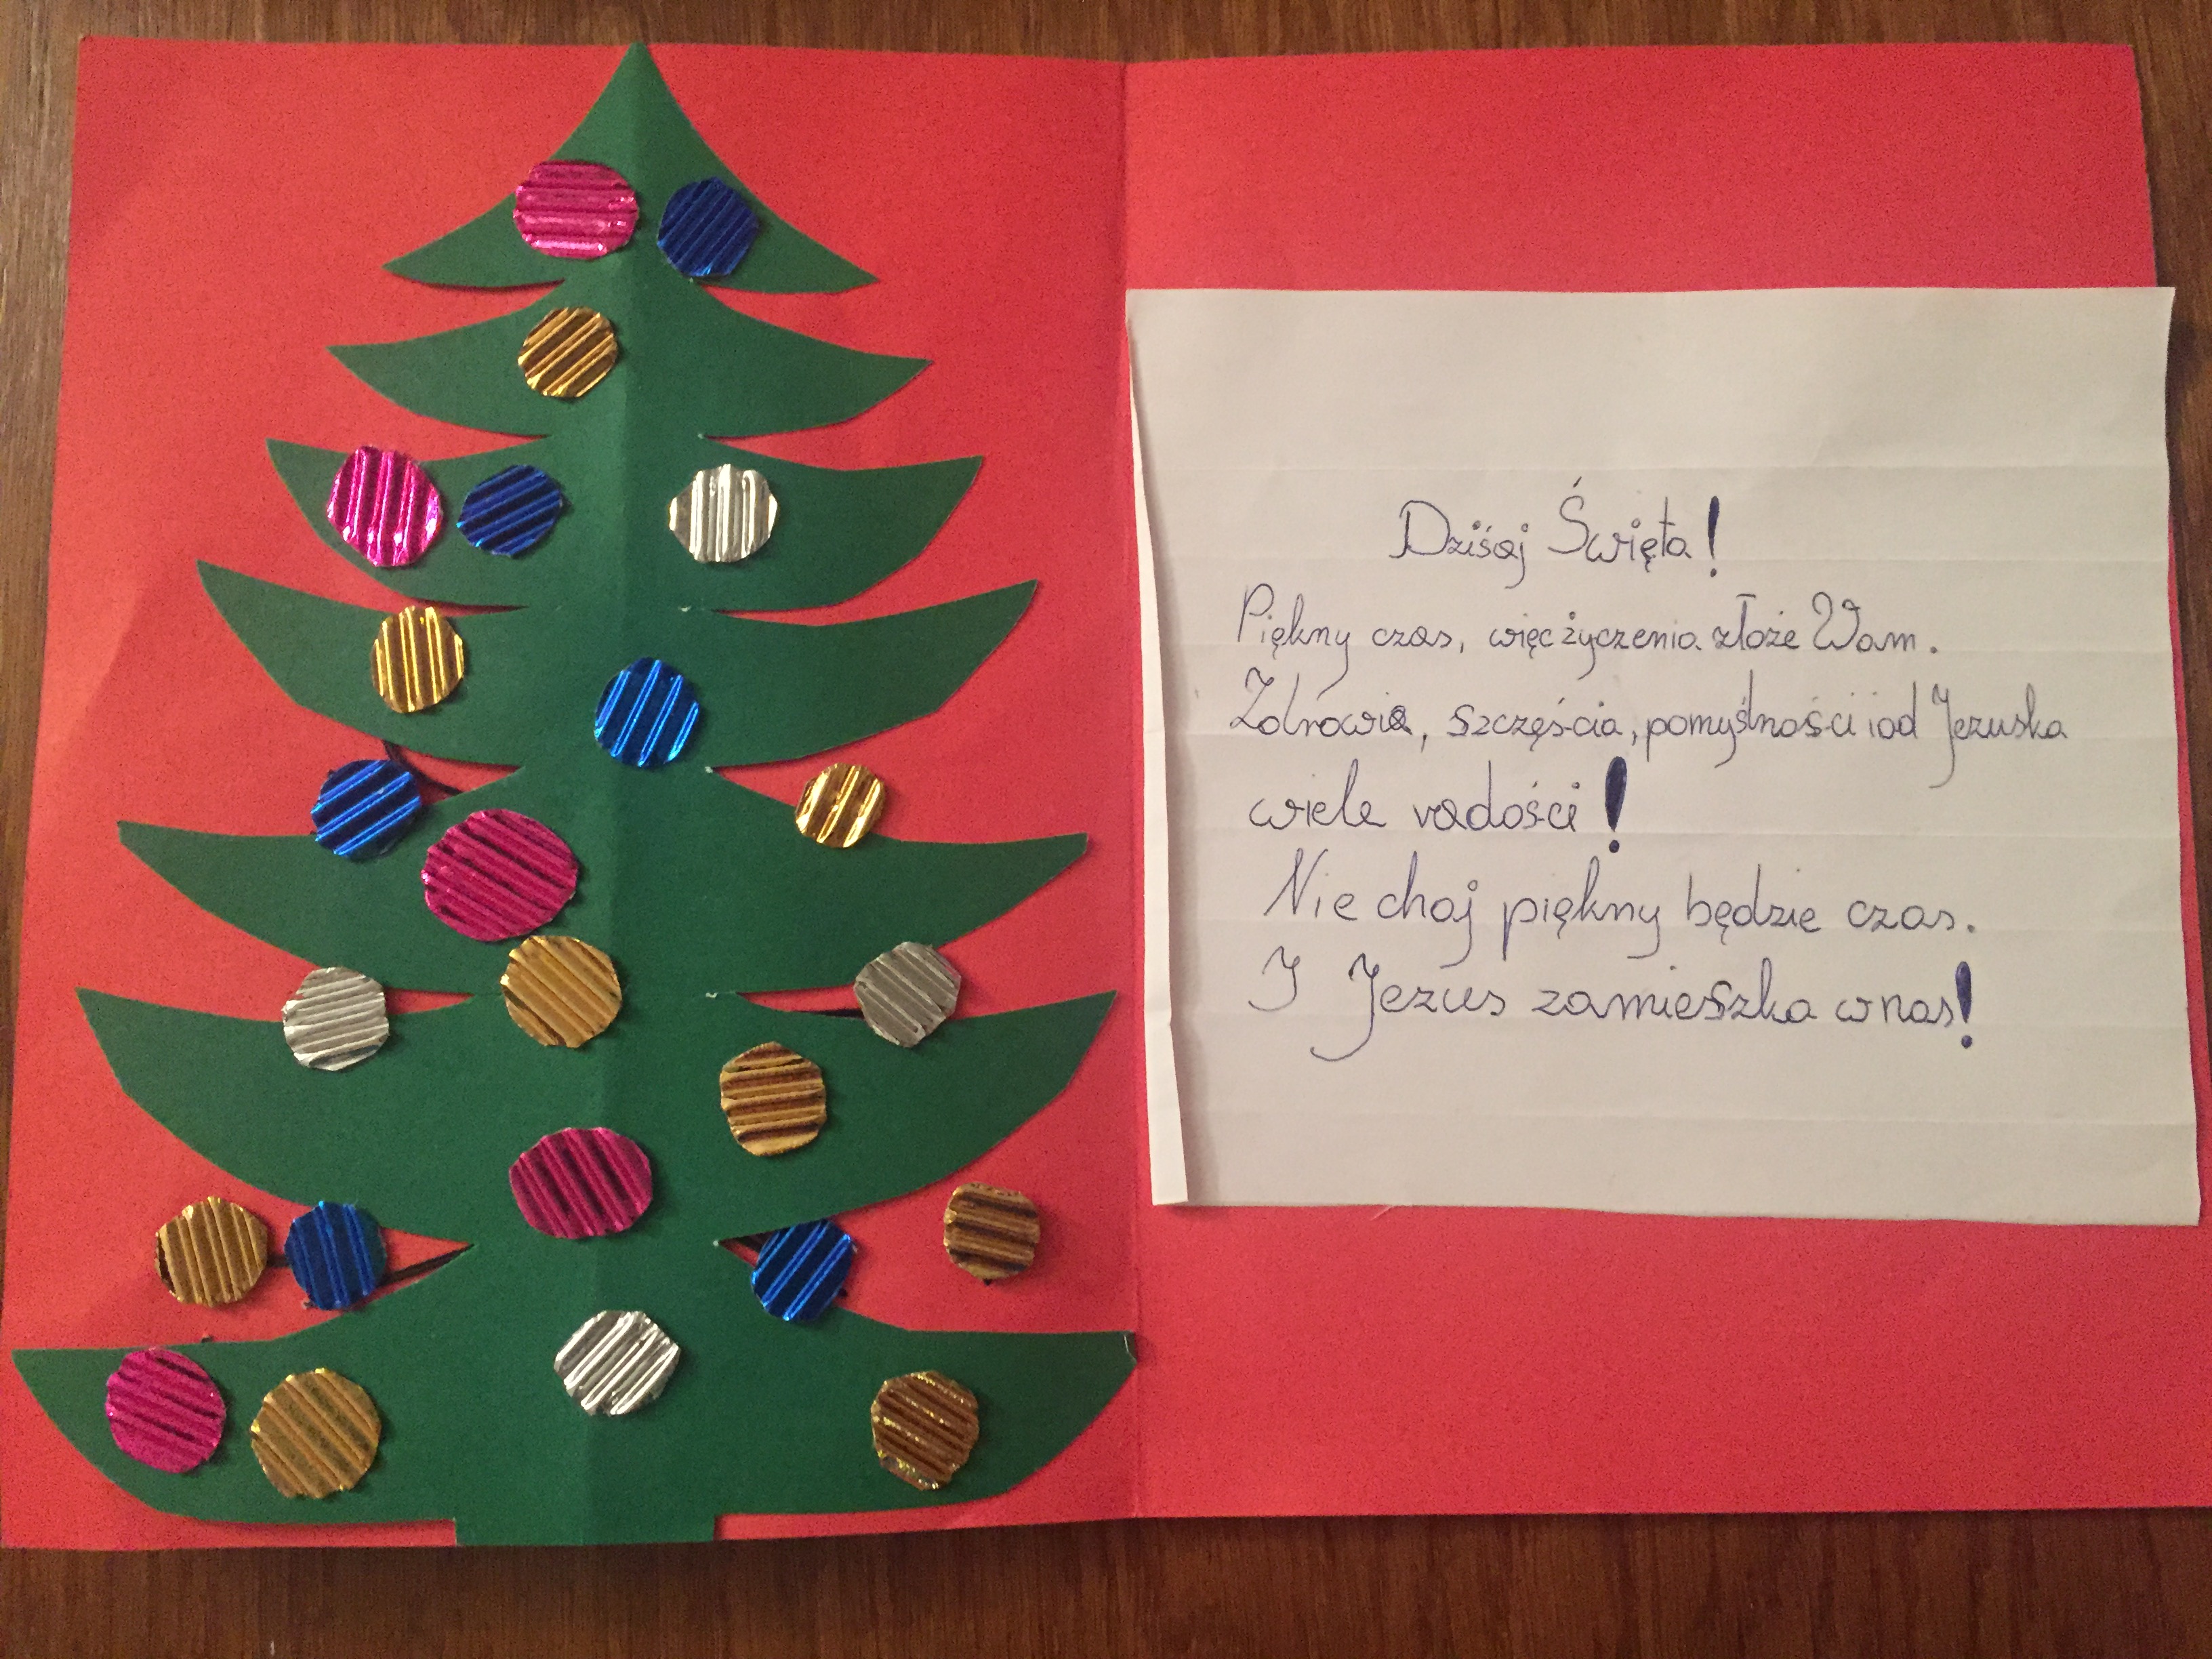 Dziśaj Święta!
Piękny czas, więc życzenia złoże Wam.
Zdrowia, szczęścia, pomyślności i od Jezuska
wiele radości!
Nie chaj piękny będzie czas.
I Jezus zamieszka w nas!